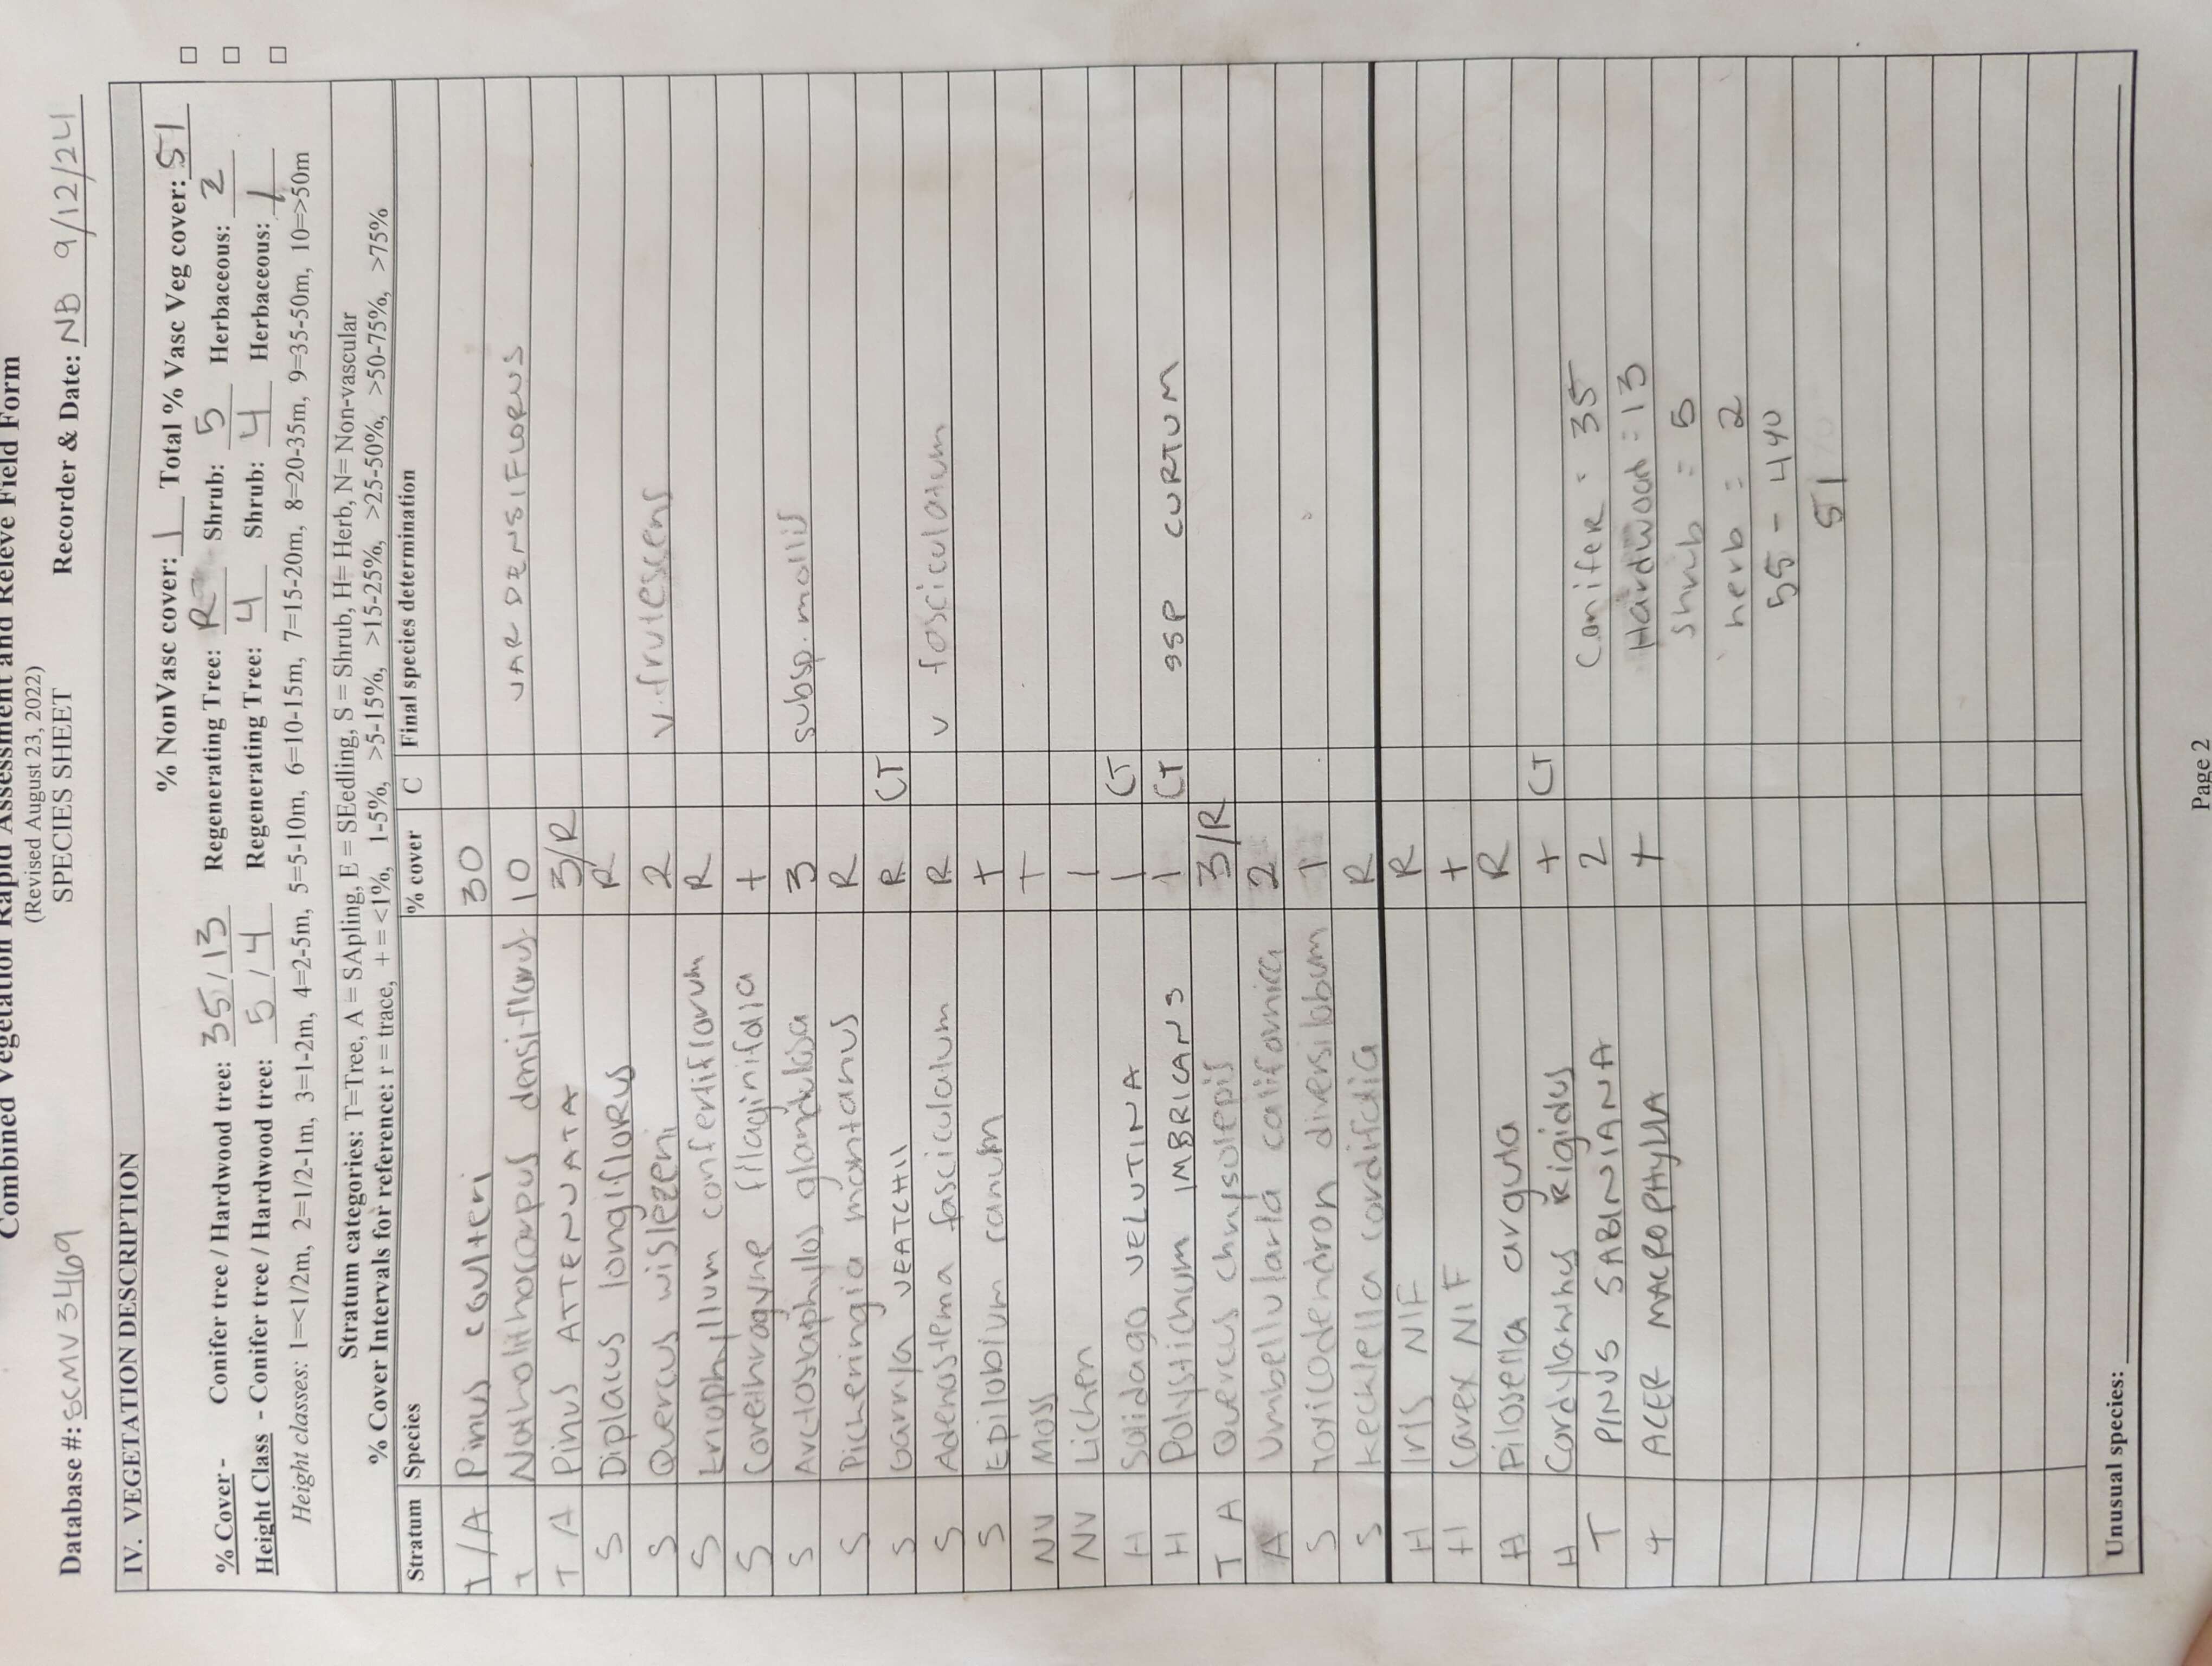 Combined Vegetation Rapid Assessment and Relevé Field Form
(Revised August 23, 2022)
SPECIES SHEET
Database #: SCMV3469 Recorder & Date: NB 9/12/24
IV. VEGETATION DESCRIPTION
% NonVasc cover: 1 Total % Vasc Veg cover: 51
% Cover - Conifer tree / Hardwood tree: 35/13 Regenerating Tree: R Shrub: 5 Herbaceous: 2
Height Class - Conifer tree / Hardwood tree: 5/4 Regenerating Tree: 4 Shrub: 4 Herbaceous: 1
Height classes: 1=<1/2m, 2=1/2-1m, 3=1-2m, 4=2-5m, 5=5-10m, 6=10-15m, 7=15-20m, 8=20-35m, 9=35-50m, 10=>50m
Stratum categories: T=Tree, A = SApling, E = SEedling, S = Shrub, H= Herb, N= Non-vascular
% Cover Intervals for reference: r = trace, + = <1%, 1-5%, >5-15%, >15-25%, >25-50%, >50-75%, >75%
Stratum Species % cover C Final species determination
T/A Pinus coulteri 30
T Notholithocarpus densiflorus 10 VAR DENSIFLORUS
T A PINUS ATTENUATA 3/R
S Diplacus longiflorus R
S Quercus wislezeni 2 v. frutescens
S Eriophyllum confertiflorum R
S Corethrogyne filaginifolia +
S Arctostaphylos glandulosa 3 subsp. mollis
S Pickeringia montanus R
S Garrya VEATCHII R CT
S Adenostema fasciculatum R v fosciculatum
S Epilobium canum +
NV Moss +
NV Lichen 1
H Solidago VELUTINA 1 CT
H Polystichum IMBRICANS 1 CT SSP CURTUM
T A Quercus chrysolepis 3/R
A Umbellularia californica 2
S Toxicodendron diversilobum 1
S Keckiella cordifolia R
H Iris NIF R
H Carex NIF +
H Pilosella arguta R
H Cordylanthus Rigidus + CT
T PINUS SABINIANA 2 Conifer = 35
T ACER MACROPHYLLA + Hardwood = 13
Shrub = 5
herb = 2
55 - 440
51
Unusual species:
Page 2